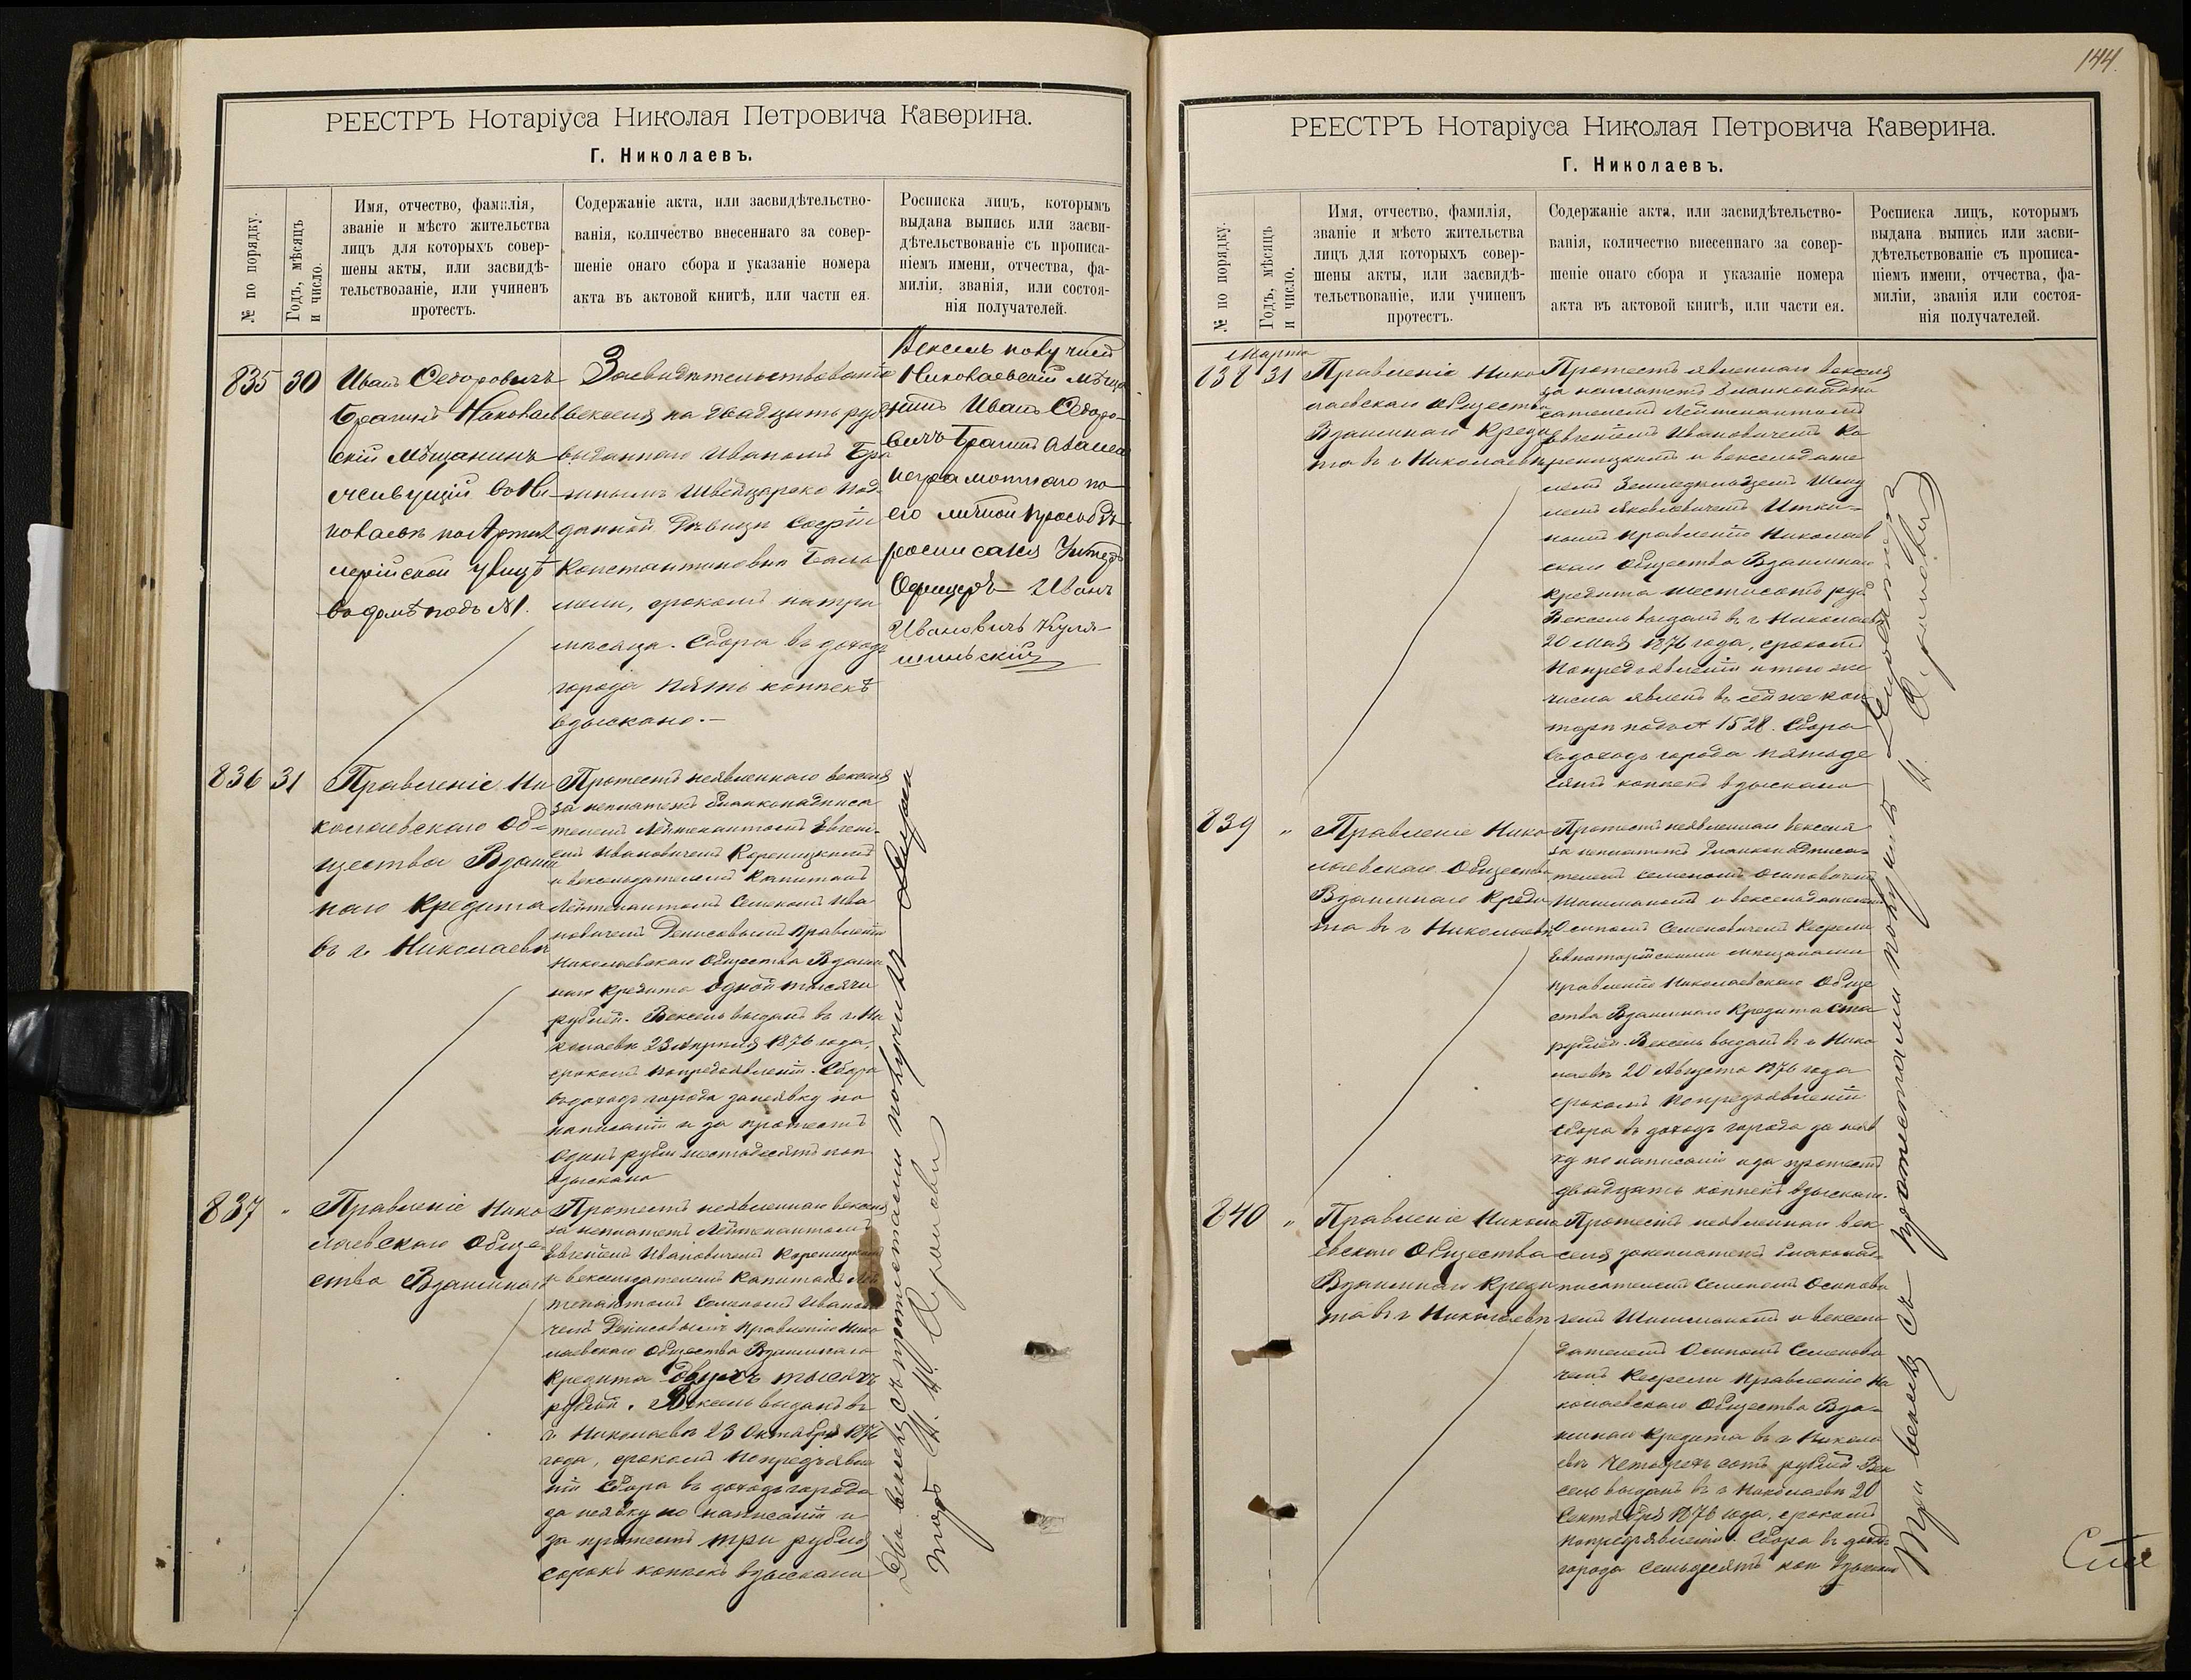 РЕЕСТРЪ Нотаріуса Николая Петровича Каверина.
Г. Николаевъ.
№ по порядку.
Годъ, мѣсяцъ
и число.
Имя, отчество, фамилія,
званіе и мѣсто жительства
лицъ для которыхъ совер-
шены акты, или засвидѣ-
тельствованіе, или учиненъ
протестъ.
Содержаніе акта, или засвидѣтельство-
ванія, количество внесеннаго за совер-
шеніе онаго сбора и указаніе номера
акта въ актовой книгѣ, или части ея.
Росписка лицъ, которымъ
выдана выпись или засви-
дѣтельствованіе съ прописа-
ніемъ имени, отчества, фа-
миліи, званія, или состоя-
нія получателей.
835
30
Иванъ Ѳедоровичъ
Николаев
скій Мѣщанинъ
живущій въ Ни
колаевѣ по Артил
лерійской улицѣ
въ домѣ подъ №1.
Засвидѣтельствованіе
векселя на двадцать руб
выданнаго Иваномъ
Швейцарско под
данной Дѣвицѣ Софіи
Константиновнѣ
срокомъ на три
мѣсяца. Сбора въ доходъ
города пять копѣекъ
взыскано.—
Вексель получилъ
Николаевскій Мѣща
нинъ Иванъ Ѳедоро
вичъ
неграмотнаго по
его личной просьбѣ
росписался Унтеръ
Офицеръ Иванъ
Ивановичъ
836
31
Правленіе Ни
колаевскаго Об=
щества Взаим
наго Кредита
въ г. Николаевѣ
Протестъ неявленнаго векселя
за неплатежъ бланконадписа
телемъ Лейтенантомъ Евгені-
емъ Ивановичемъ Кореницкимъ
и векселедателемъ Капитанъ
Лейтенантомъ Семеномъ Ива
новичемъ Денисовымъ Правленію
Николаевскаго Общества Взаим
наго Кредита одной тысячи
рублей. Вексель выданъ въ г. Ни
колаевѣ 23 Апрѣля 1876 года,
срокомъ по предъявленіи. Сбора
въ доходъ города за неявку по
написаніи и за протестъ
одинъ рубль шестьдесятъ коп
взыскано
837
"
Правленіе Нико
лаевскаго Обще-
ства Взаимнаго
Протестъ неявленнаго векселя
за неплатежъ Лейтенантомъ
Евгеніемъ Ивановичемъ Кореницкимъ
и векселедателемъ Капитанъ Лей
тенантомъ Семеномъ Иванови
чемъ Денисовымъ Правленію Нико
лаевскаго Общества Взаимнаго
Кредита двухъ тысячъ
рублей. Вексель выданъ въ
г. Николаевѣ 23 Октября 1876
года, срокомъ по предъявле
ніи Сбора въ доходъ города
за неявку по написаніи и
за протестъ три рубля
сорокъ копѣекъ взыскано
Два векселя съ протестами получилъ
144.
РЕЕСТРЪ Нотаріуса Николая Петровича Каверина.
Г. Николаевъ.
№ по порядку.
Годъ, мѣсяцъ
и число.
Имя, отчество, фамилія,
званіе и мѣсто жительства
лицъ для которыхъ совер-
шены акты, или засвидѣ-
тельствованіе, или учиненъ
протестъ.
Содержаніе акта, или засвидѣтельство-
ванія, количество внесеннаго за совер-
шеніе онаго сбора и указаніе номера
акта въ актовой книгѣ, или части ея.
Росписка лицъ, которымъ
выдана выпись или засви-
дѣтельствованіе съ прописа-
ніемъ имени, отчества, фа-
миліи, званія или состоя-
нія получателей.
Марта
838
31
Правленіе Нико
лаевскаго Общества
Взаимнаго Креди
та въ г. Николаевѣ
Протестъ явленнаго векселя
за неплатежъ бланконадпи
сателемъ Лейтенантомъ
Евгеніемъ Ивановичемъ Ко
реницкимъ и векселедате
лемъ
Яковлевичемъ
Правленію Николаев
скаго Общества Взаимнаго
Кредита шестисотъ руб
Вексель выданъ въ г. Николаевѣ
20 Мая 1876 года, срокомъ
по предъявленіи и того же
числа явленъ въ сей же кон
торѣ подъ № 1528. Сбора
въ доходъ города пятьде
сятъ копѣекъ взыскано
839
"
Правленіе Нико
лаевскаго Общества
Взаимнаго Креди
та въ г. Николаевѣ
Протестъ неявленнаго векселя
за неплатежъ бланконадписа-
телемъ Семеномъ Осиповичемъ
Шишманомъ и векселедателемъ
Осипомъ Семеновичемъ Кефели
Евпаторійскими мѣщанами
Правленію Николаевскаго Обще
ства Взаимнаго Кредита Ста
рублей. Вексель выданъ въ г. Нико
лаевѣ 20 Августа 1876 года
срокомъ по предъявленіи
Сбора въ доходъ города за неяв
ку по написаніи и за протестъ
двадцать копѣекъ взыскано.
840
"
Правленіе Никола
евскаго Общества
Взаимнаго Креди
та въ г. Николаевѣ
Протестъ неявленнаго век
селя за неплатежъ бланконад-
писателемъ Семеномъ Осипови
чемъ Шишманомъ и векселе
дателемъ Осипомъ Семенови
чемъ Кефели Правленію Ни
колаевскаго Общества Вза-
имнаго Кредита въ г. Никола
евѣ Четырехъ сотъ рублей Век
сель выданъ въ г. Николаевѣ 20
Сентября 1876 года, срокомъ
по предъявленіи. Сбора въ доходъ
города семьдесятъ коп взыскано
Три векселя съ протестами получилъ